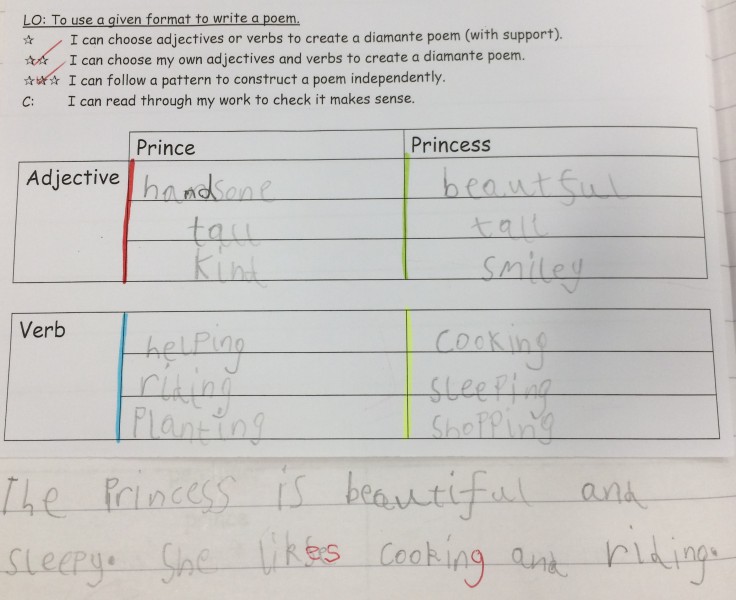 LO: To use a given format to write a poem.
☆ I can choose adjectives or verbs to create a diamante poem (with support).
☆☆ I can choose my own adjectives and verbs to create a diamante poem.
☆☆☆ I can follow a pattern to construct a poem independently.
C: I can read through my work to check it makes sense.
Prince Princess
Adjective handsone beautful
tall tall
kind smiley
Verb helping cooking
riding sleeping
Planting Shopping
The Princess is beautiful and
sleepy. She likes cooking and riding.